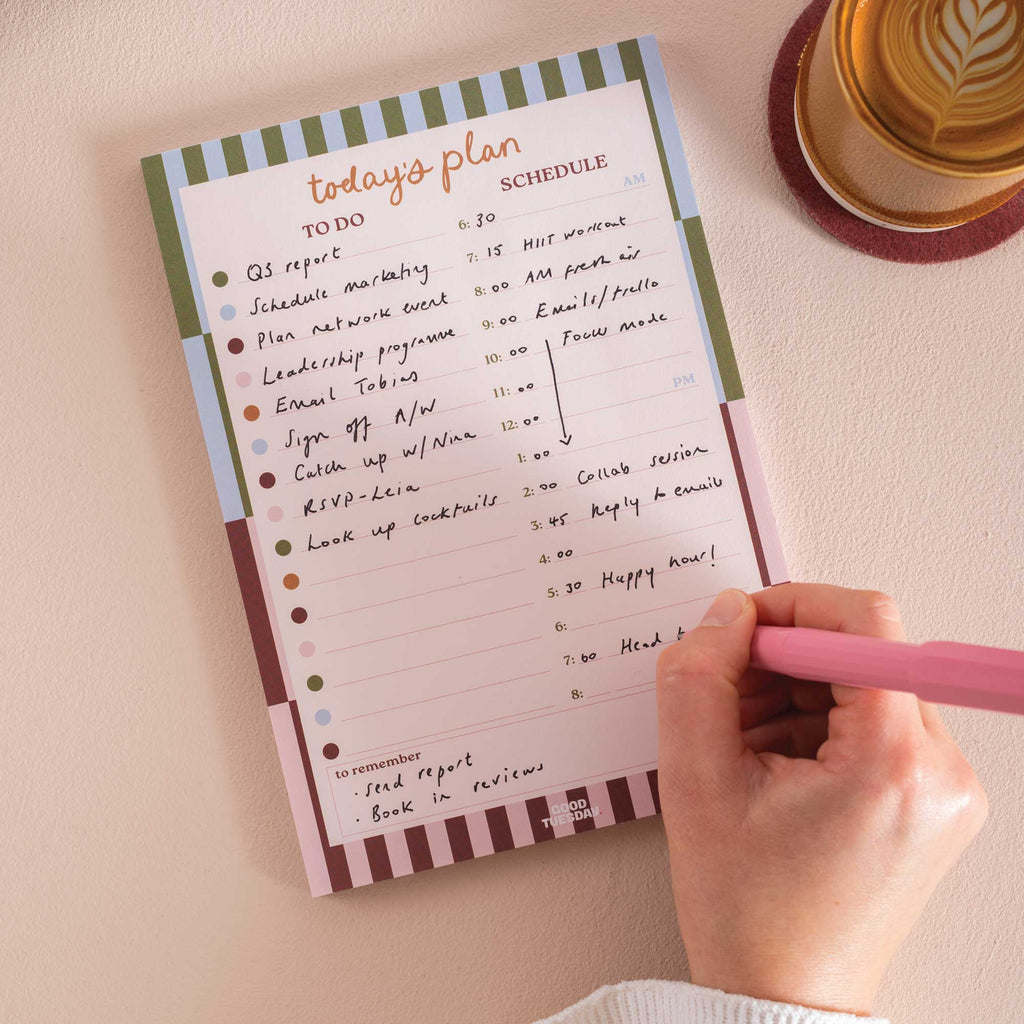 today's plan
TO DO
Q3 report
Schedule marketing
Plan network event
Leadership programme
Email Tobias
Sign off A/W
Catch up w/Nina
RSVP-Leia
Look up cocktails
SCHEDULE
AM
6:30
7:15 HIIT workout
8:00 AM fresh air
9:00 Emails/trello
10:00 Focus mode
11:00
PM
12:00
1:00
2:00 Collab session
3:45 Reply to emails
4:00
5:30 Happy hour!
6:
7:00 Head
8:
to remember
· send report
· Book in reviews
GOOD
TUESDAY.